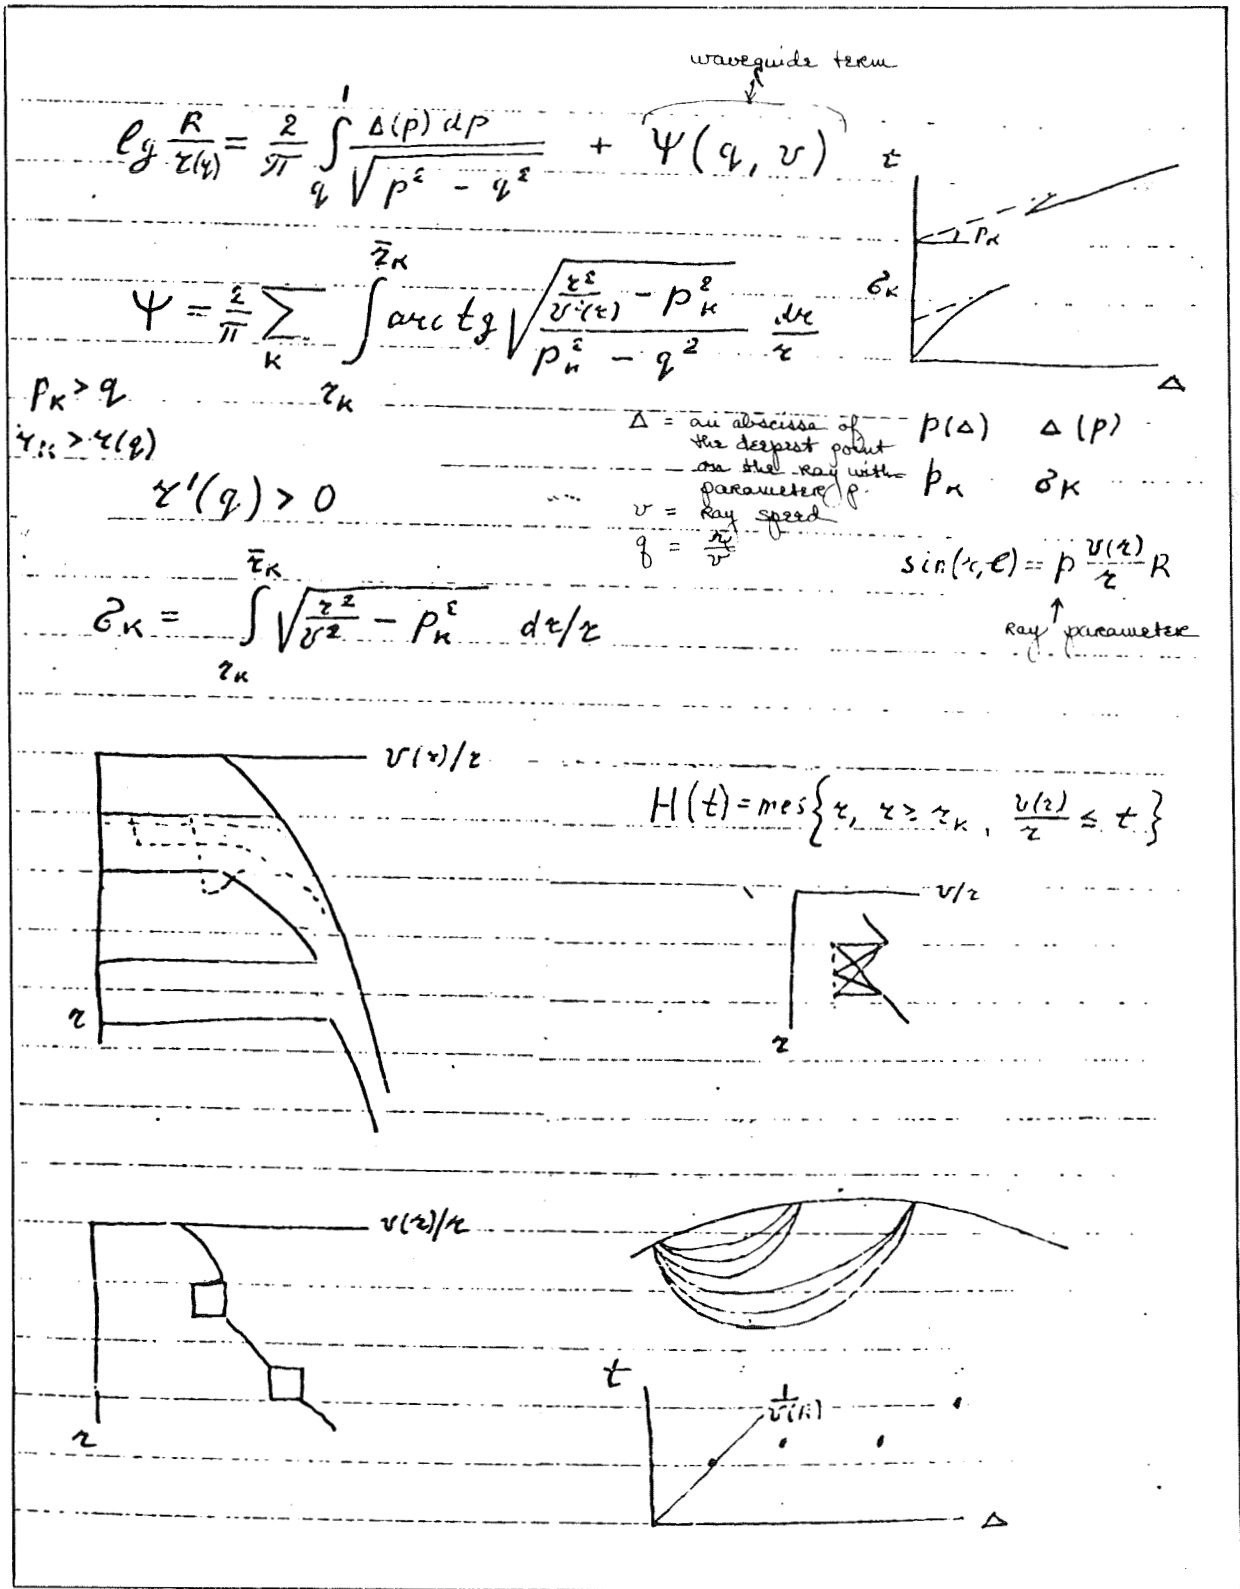 waveguide term
lg R/r(q) = 2/π ∫_q^1 Δ(p) dp / √(p² − q²) + Ψ(q, v)
t
p_K
Ψ = 2/π Σ_K ∫_{r_K}^{r̄_K} arc tg √((r²/v²(r) − p_K²)/(p_K² − q²)) dr/r
σ_K
Δ
p_K > q
r_K > r(q)
r'(q) > 0
Δ = an abscissa of
the deepest point
on the ray with
parameter p.
v = Ray speed
q = r/v
p(Δ) Δ(p)
p_K σ_K
sin(r, e) = p v(r)/r R
Ray parameter
σ_K = ∫_{r_K}^{r̄_K} √(r²/v² − p_K²) dr/r
v(r)/r
H(t) = mes{r, r ≥ r_K, v(r)/r ≤ t}
v/r
r
r
v(r)/r
r
t
1/v(R)
Δ